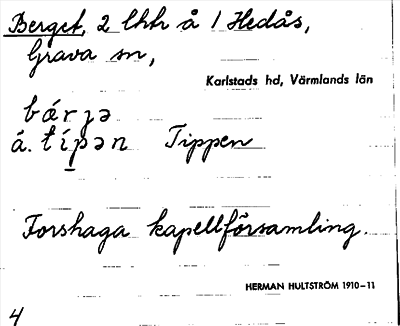 Berget, 2 lhh å 1 Hedås,
Grava sn,
Karlstads hd, Värmlands län
bǽrjə
á. típən Tippen
Forshaga kapellförsamling.
HERMAN HULTSTRÖM 1910–11
4